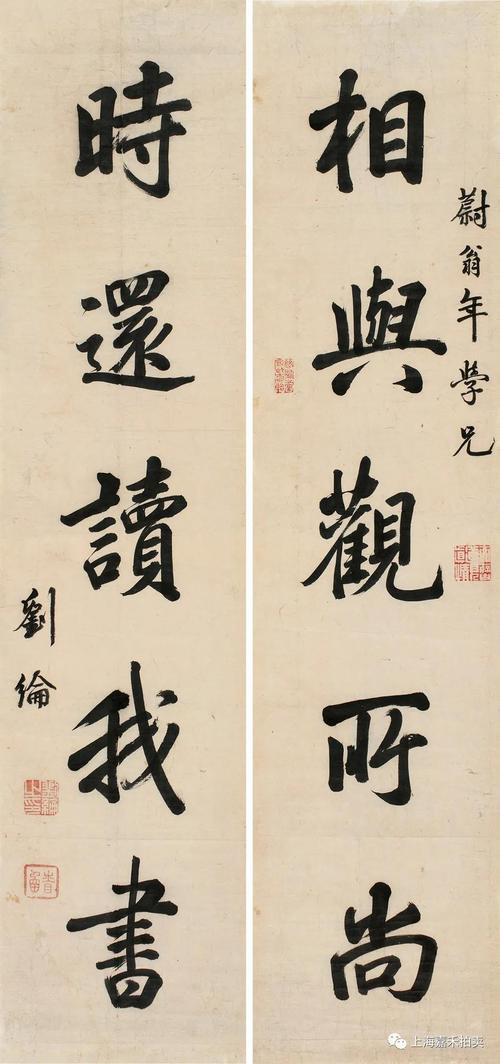 蔚翁年学兄
相與觀所尚
時還讀我書
劉綸
上海嘉禾拍卖